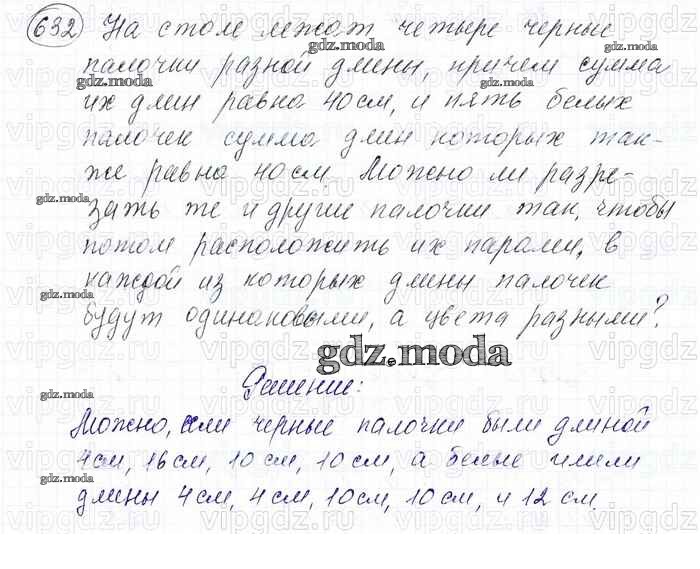 632 На столе лежат четыре черные
палочки разной длины, причем сумма
их длин равна 40 см, и пять белых
палочек сумма длин которых так-
же равна 40 см. Можно ли разре-
зать те и другие палочки так, чтобы
потом расположить их парами, в
каждой из которых длины палочек
будут одинаковыми, а цвета разными?
gdz.moda
Решение:
Можно, если черные палочки были длиной
4 см, 16 см, 10 см, 10 см, а белые имели
длины 4 см, 4 см, 10 см, 10 см, и 12 см.